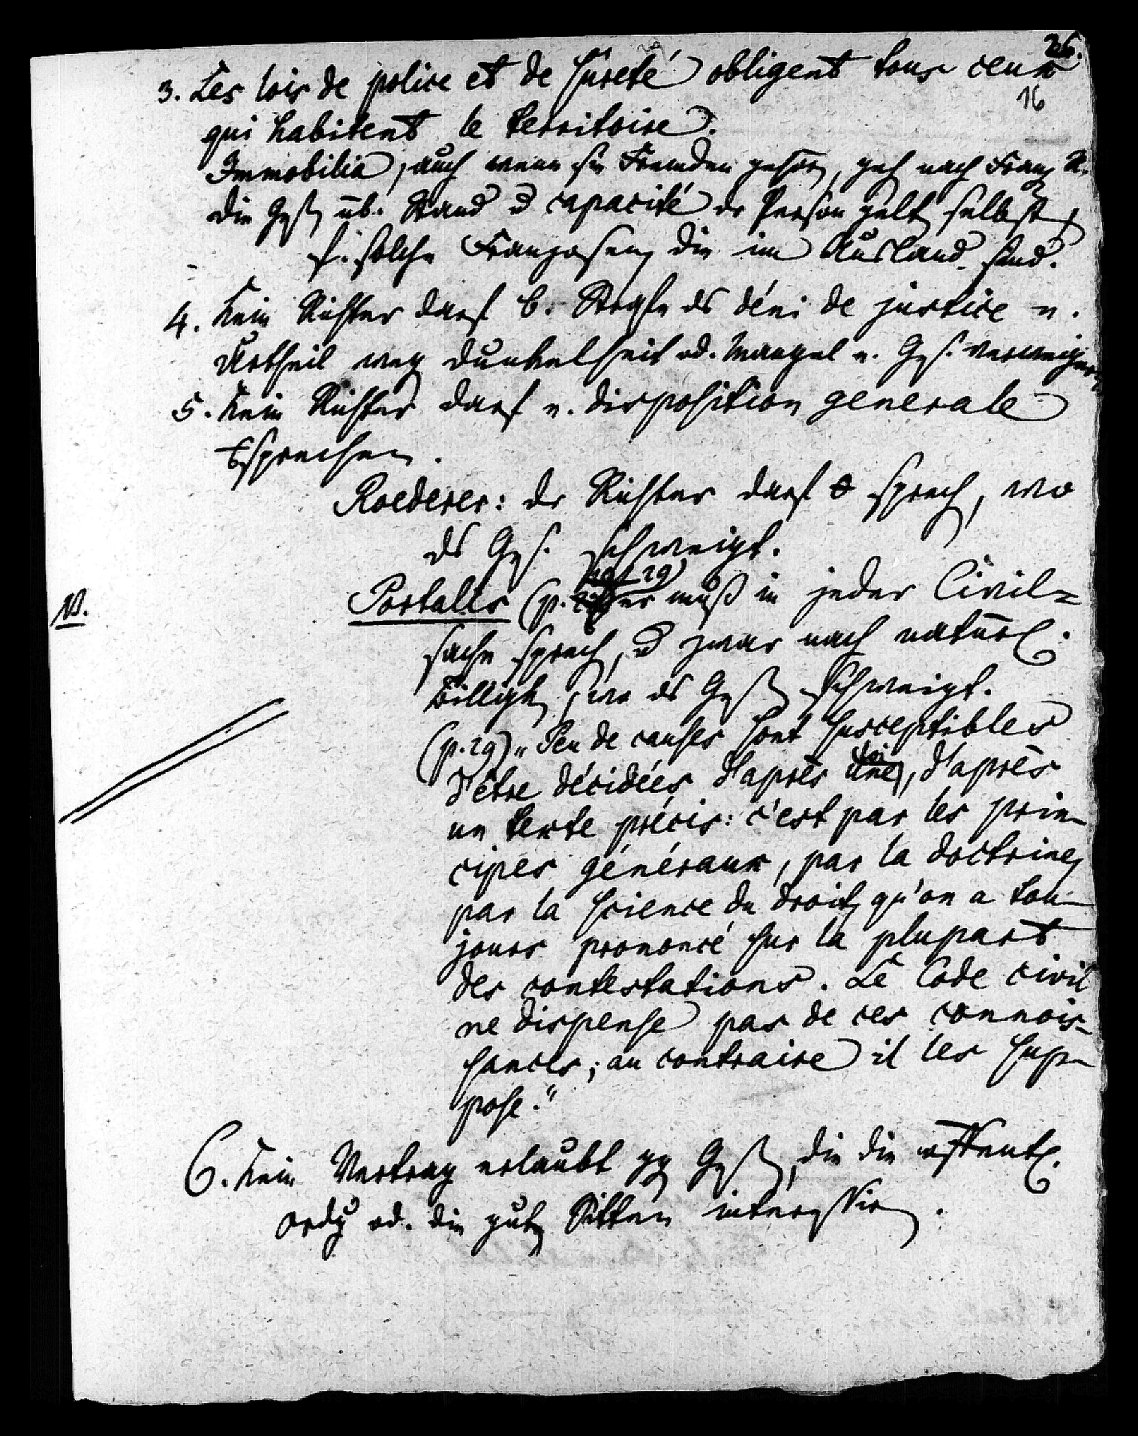 26.
16
3. Les lois de police et de sûreté obligent tous ceux
qui habitent le territoire.
Immobilia, auch wenn sie Fremden gehör, geh nach Franz R.
die Gess üb. Stand u capacité dr Person gelt selbst
f. solche Franzosen, die im Ausland sind.
4. Kein Richter darf b. Strafe ds déni de justice e.
Urtheil weg Dunkelheit od. Mangel e. Ges. verweigern
5. Kein Richter darf e. disposition generale
sprechen.
Roederer: dr Richter darf sprech, wo
ds Ges. schweigt.
N. Portalis (p. 29) muß in jeder Civil=
sache sprech, u zwar nach natürl.
Billigk, wo ds Gess schweigt.
(p. 29) „Peu de causes sont susceptibles
d'être décidées d'après une loi, d'après
un texte précis: c'est par les prin-
cipes généraux, par la doctrine,
par la science du droit, qu'on a tou-
jours prononcé sur la plupart
des contestations. Le Code civil
ne dispense pas de ces connois-
sances; au contraire il les sup-
pose."
6. Kein Vertrag erlaubt gg Gess, die die öffentl.
ordg od. die gut Sitten interessir.